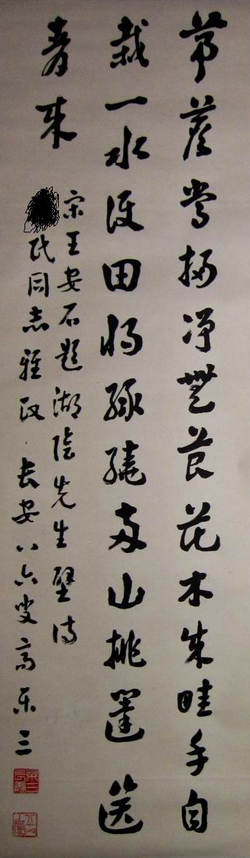 茅簷常扫净無苔花木成畦手自
栽一水护田将绿绕两山排闼送
青来
宋王安石题湖陰先生壁诗
民同志雅政 长安八六叟高乐三